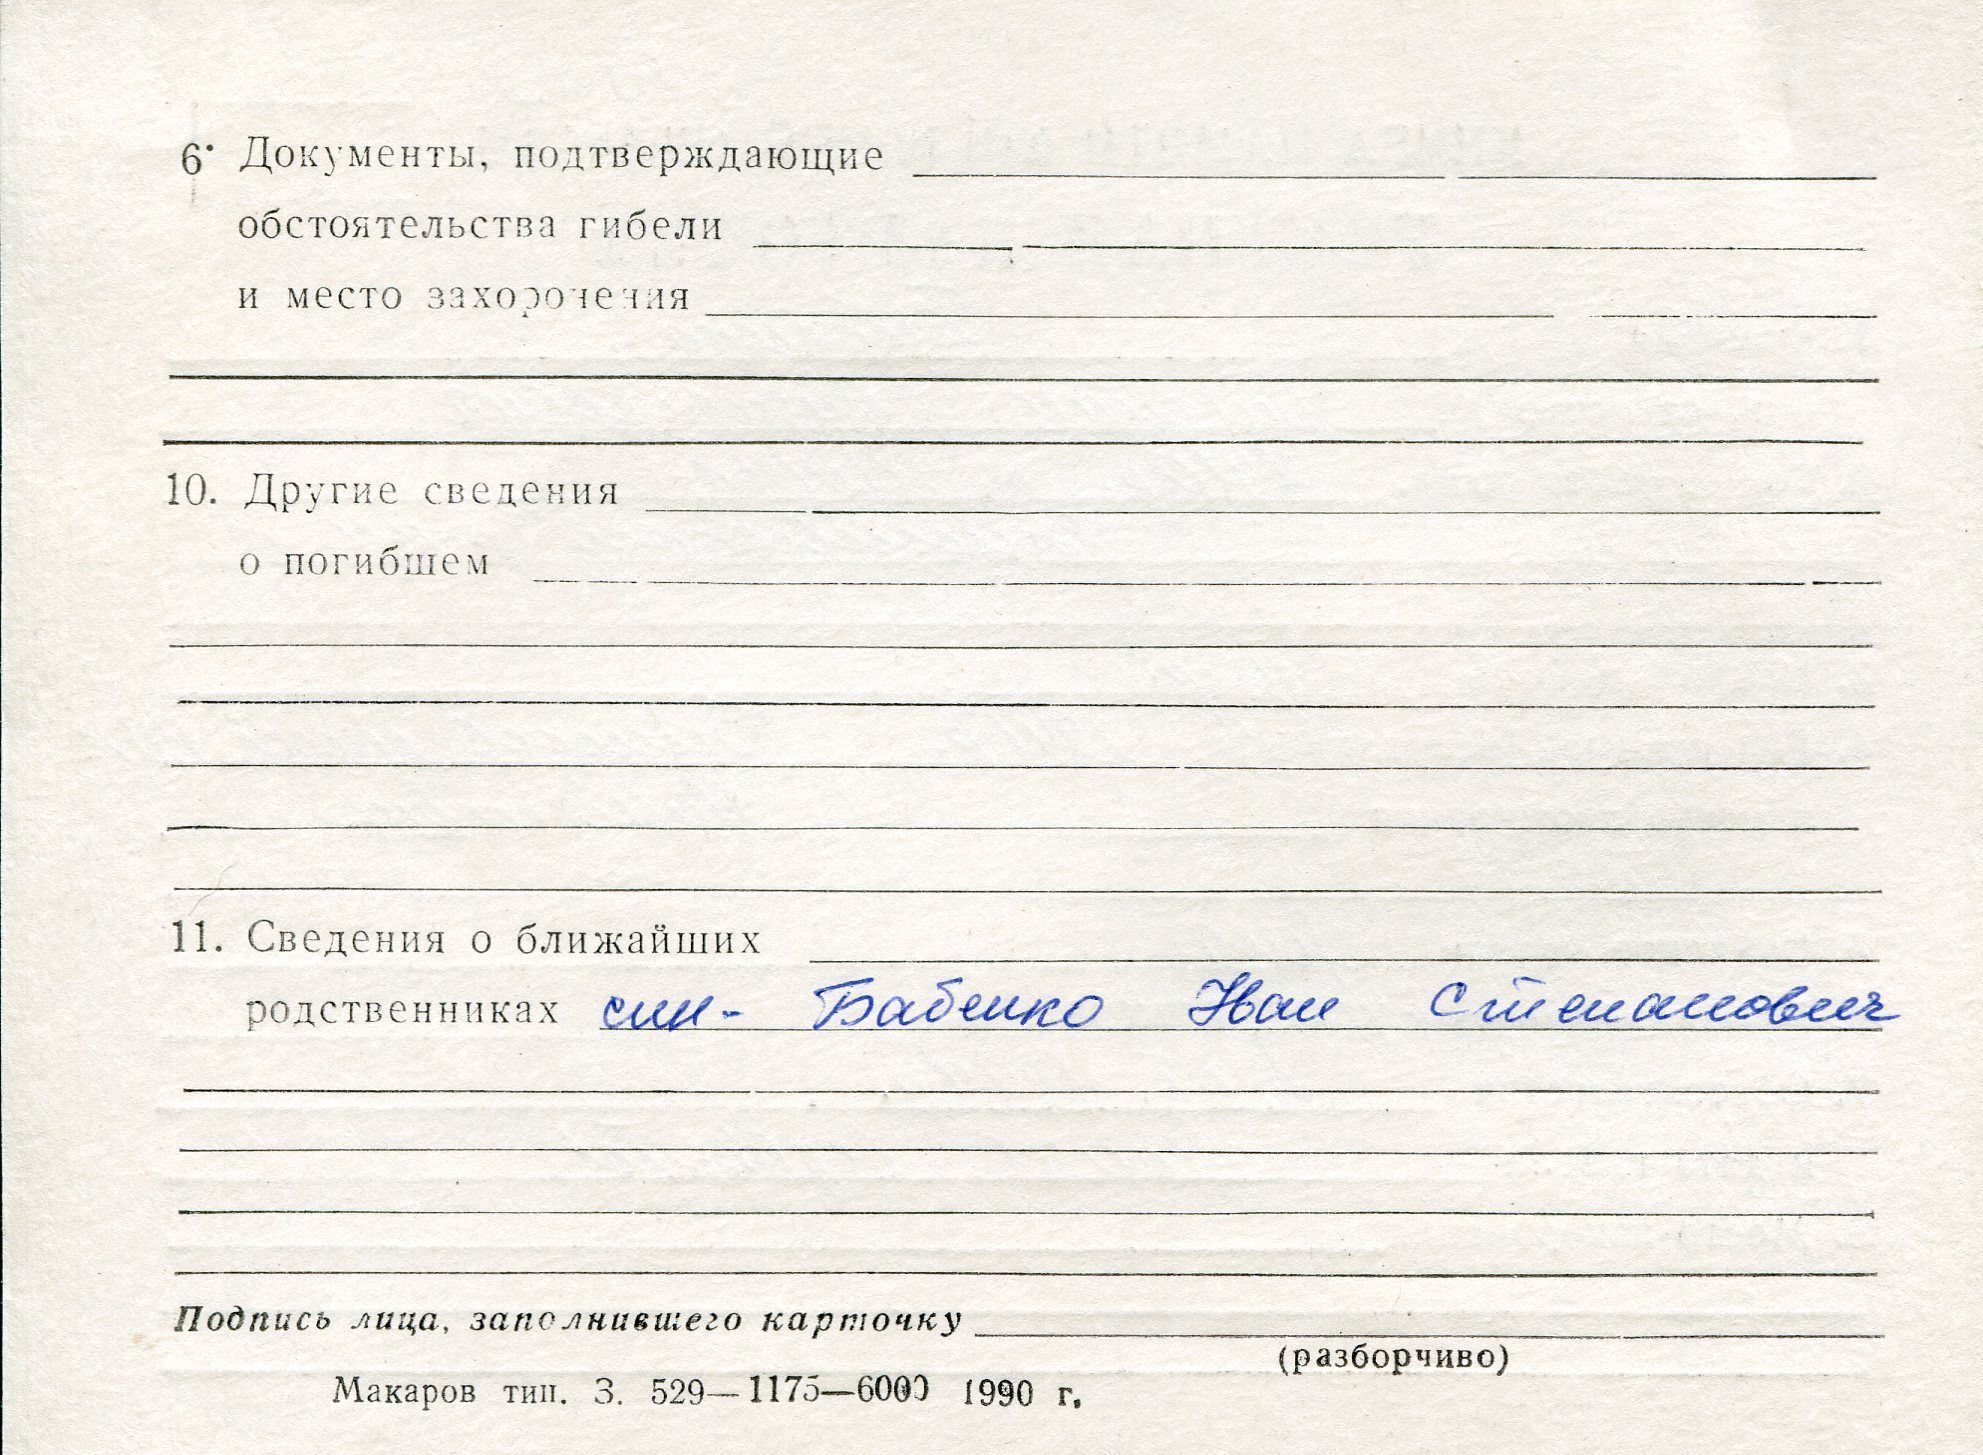 6. Документы, подтверждающие
обстоятельства гибели
и место захоронения
10. Другие сведения
о погибшем
11. Сведения о ближайших
родственниках син - Бабенко Иван Степанович
Подпись лица, заполнившего карточку
(разборчиво)
Макаров тип. З. 529—1175—6000 1990 г.